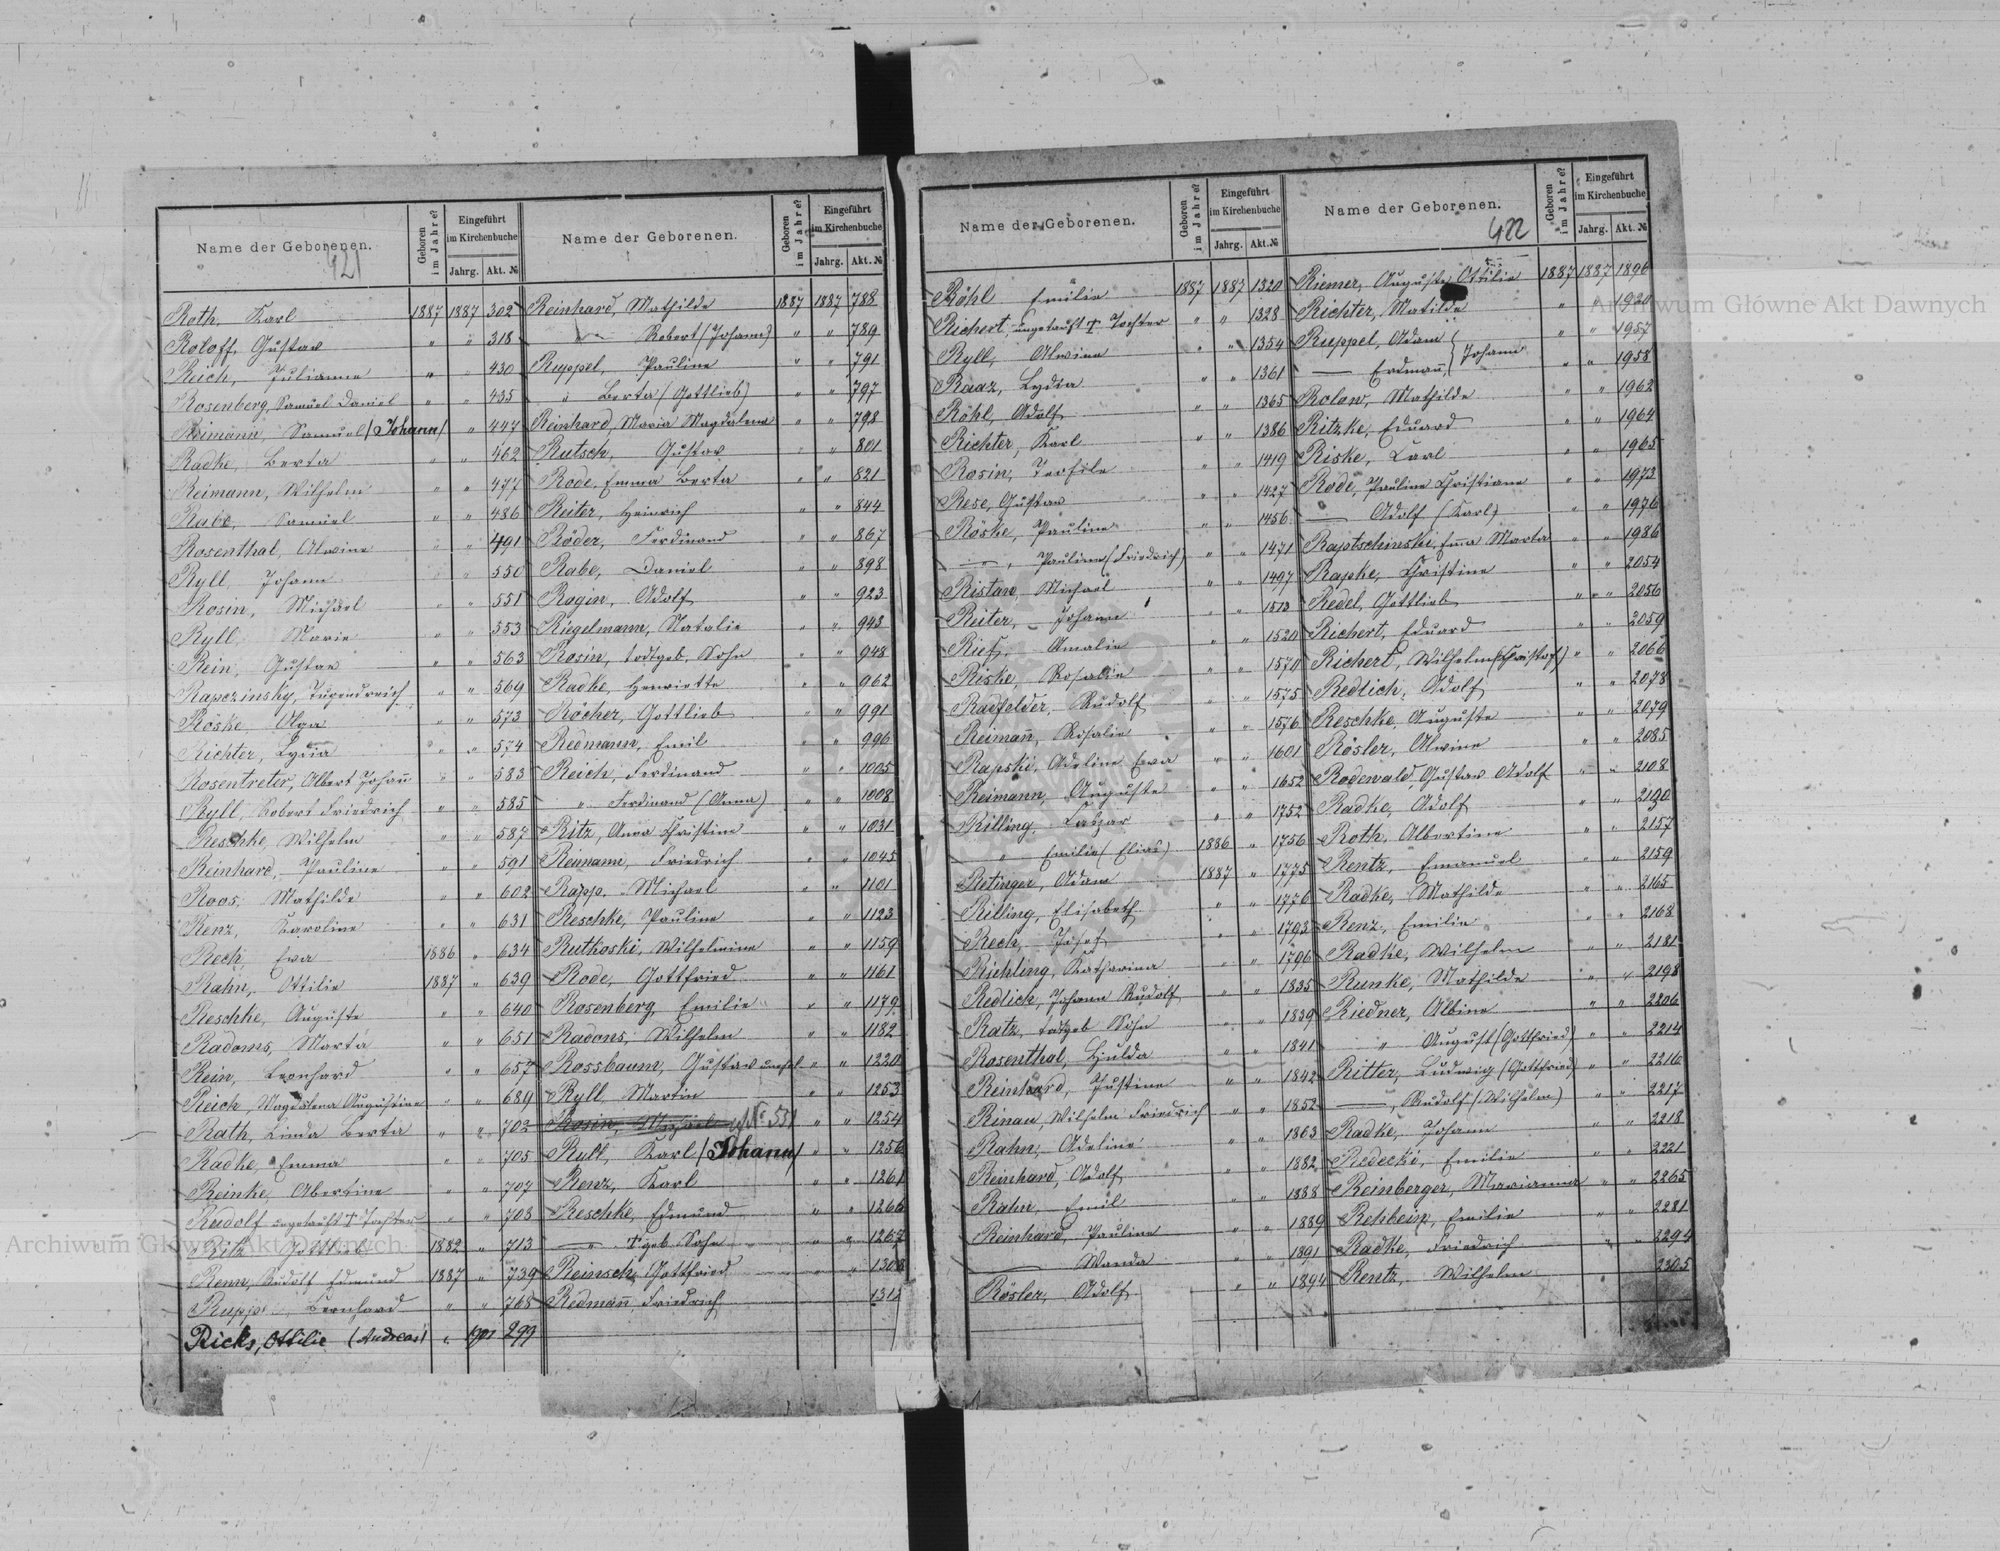 Name der Geborenen. Geboren im Jahre? Eingeführt im Kirchenbuche Jahrg. Akt. №
421
Roth, Karl 1887 1887 302
Roloff, Gustav " " 318
Reich, Julianne " " 430
Rosenberg, Samuel Daniel " " 435
Reimann, Samuel (Johann) " 447
Radke, Berta " " 462
Reimann, Wilhelm " " 477
Rabe, Samuel " " 486
Rosenthal, Alwine " " 491
Ryll, Johann " " 550
Rosin, Michael " " 551
Ryll, Marie " " 553
Rein, Gustav " " 563
Rapczinsky, " " 569
Röske, Olga " " 573
Richter, Lydia " " 574
Rosentreter, Albert Johann " " 583
Ryll, Robert Friedrich " " 585
Reschke, Wilhelm " " 587
Reinhard, Pauline " " 591
Roos, Mathilde " " 602
Renz, Karoline " " 631
Rech, Eva 1886 " 634
Rahn, Ottilie 1887 " 639
Reschke, Auguste " " 640
Radoms, Marta " " 651
Rein, Leonhard " " 657
Reich, Magdalena Augustine " " 689
Rath, Linda Berta " " 702
Radke, Emma " " 705
Reinke, Abertine " " 707
Rudolf ungetauft † Tochter " " 708
Ritz, Gottlieb 1882 " 713
Renn, Rudolf Edmund 1887 " 739
Rupp, Bernhard " " 768
Ricks, Ottilie (Andreas) " 1901 299
Name der Geborenen. Geboren im Jahre? Eingeführt im Kirchenbuche Jahrg. Akt. №
Reinhard, Mathilde 1887 1887 788
" Robert (Johann) " " 789
Ruppel, Pauline " " 791
" Berta (Gottlieb) " " 797
Reinhard, Maria Magdalena " " 798
Rutsch, Gustav " " 801
Rode, Emma Berta " " 821
Reiter, Heinrich " " 844
Röder, Ferdinand " " 867
Rabe, Daniel " " 898
Rogin, Adolf " " 923
Riegelmann, Natalie " " 943
Rosin, todtgeb. Sohn " " 948
Radke, Henriette " " 962
Röcher, Gottlieb " " 991
Redmann, Emil " " 996
Reich, Ferdinand " " 1005
" Ferdinand (Anna) " " 1008
Ritz, Anna Christine " " 1031
Reimann, Friedrich " " 1045
Rapp, Michael " " 1101
Reschke, Pauline " " 1123
Rutkoski, Wilhelmine " " 1159
Rode, Gottfried " " 1161
Rosenberg, Emilie " " 1179
Radons, Wilhelm " " 1182
Rossbaum, Gustav unehel " " 1220
Ryll, Martin " " 1253
Rosin, Michael № 551 " " 1254
Ryll, Karl (Johann) " " 1256
Renz, Karl " " 1261
Reschke, Edmund " " 1266
" † geb. Sohn " " 1267
Reinsch, Gottfried " " 1308
Redmann Friedrich 1315
Name der Geborenen. Geboren im Jahre? Eingeführt im Kirchenbuche Jahrg. Akt. №
Röhl Emilie 1887 1887 1320
Richert, ungetauft † Tochter " " 1328
Ryll, Alwine " " 1354
Raaz, Lydia " " 1361
Röhl, Adolf " " 1365
Richter, Karl " " 1386
Rosin, Teofile " " 1419
Rese, Gustav " " 1427
Röske, Pauline " " 1456
" , Pauline (Friedrich) " " 1471
Ristau, Michael " " 1497
Reiter, Johann " " 1513
Amalie " " 1520
Riske, Rosalie " " 1570
Radfelder, Rudolf " " 1575
Reimann, Rosalie " " 1576
Rapski, Adeline Ewa " " 1601
Reimann, Auguste " " 1652
Rilling, Kaspar " " 1752
" Emilie (Elias) 1886 " 1756
Retinger, Adam 1887 " 1775
Rilling, Elisabeth " " 1776
Rech, Josef " " 1793
Richling, Katharina " " 1796
Redlich, Johann Rudolf " " 1835
Ratz, todtgeb Sohn " " 1839
Rosenthal, Hulda " " 1841
Reinhard, Justine " " 1842
Rinau, Wilhelm Friedrich " " 1852
Rahn, Adeline " " 1863
Reinhard, Adolf " " 1882
Rahn, Emil " " 1888
Reinhard, Pauline " " 1889
Wanda " " 1891
Rösler, Adolf " " 1894
Name der Geborenen. Geboren im Jahre? Eingeführt im Kirchenbuche Jahrg. Akt. №
422
Riemer, Auguste Ottilie 1887 1887 1896
Richter, Matilde " " 1920
Ruppel, Adam } Johann " " 1957
— Erdmann, " " 1958
Rolow, Mathilde " " 1962
Ritzke, Eduard " " 1964
Riske, Karl " " 1965
Rode, Pauline Christiane " " 1973
— Adolf (Karl) " " 1976
Raptschinski, Emma Marta " " 1986
Rapke, Christine " " 2054
Redel, Gottlieb " " 2056
Richert, Eduard " " 2059
Richert, Wilhelm (Christof) " " 2066
Redlich, Adolf " " 2078
Reschke, Auguste " " 2079
Rösler, Alwine " " 2085
Rodewald, Gustav Adolf " " 2108
Radke, Adolf " " 2130
Roth, Albertine " " 2157
Rentz, Emanuel " " 2159
Radke, Mathilde " " 2165
Renz, Emilie " " 2168
Radke, Wilhelm " " 2181
Runke, Mathilde " " 2198
Riedner, Albine " " 2206
" August (Gottfried) " " 2214
Ritter, Ludwig (Gottfried) " " 2216
—, Rudolf (Wilhelm) " " 2217
Radke, Johann " " 2218
Redecki, Emilie " " 2221
Reinberger, Marianna " " 2265
Rehbein, Emilie " " 2281
Radke, Friedrich " " 2294
Rentz, Wilhelm 2305
Archiwum Główne Akt Dawnych
Archiwum Główne Akt Dawnych